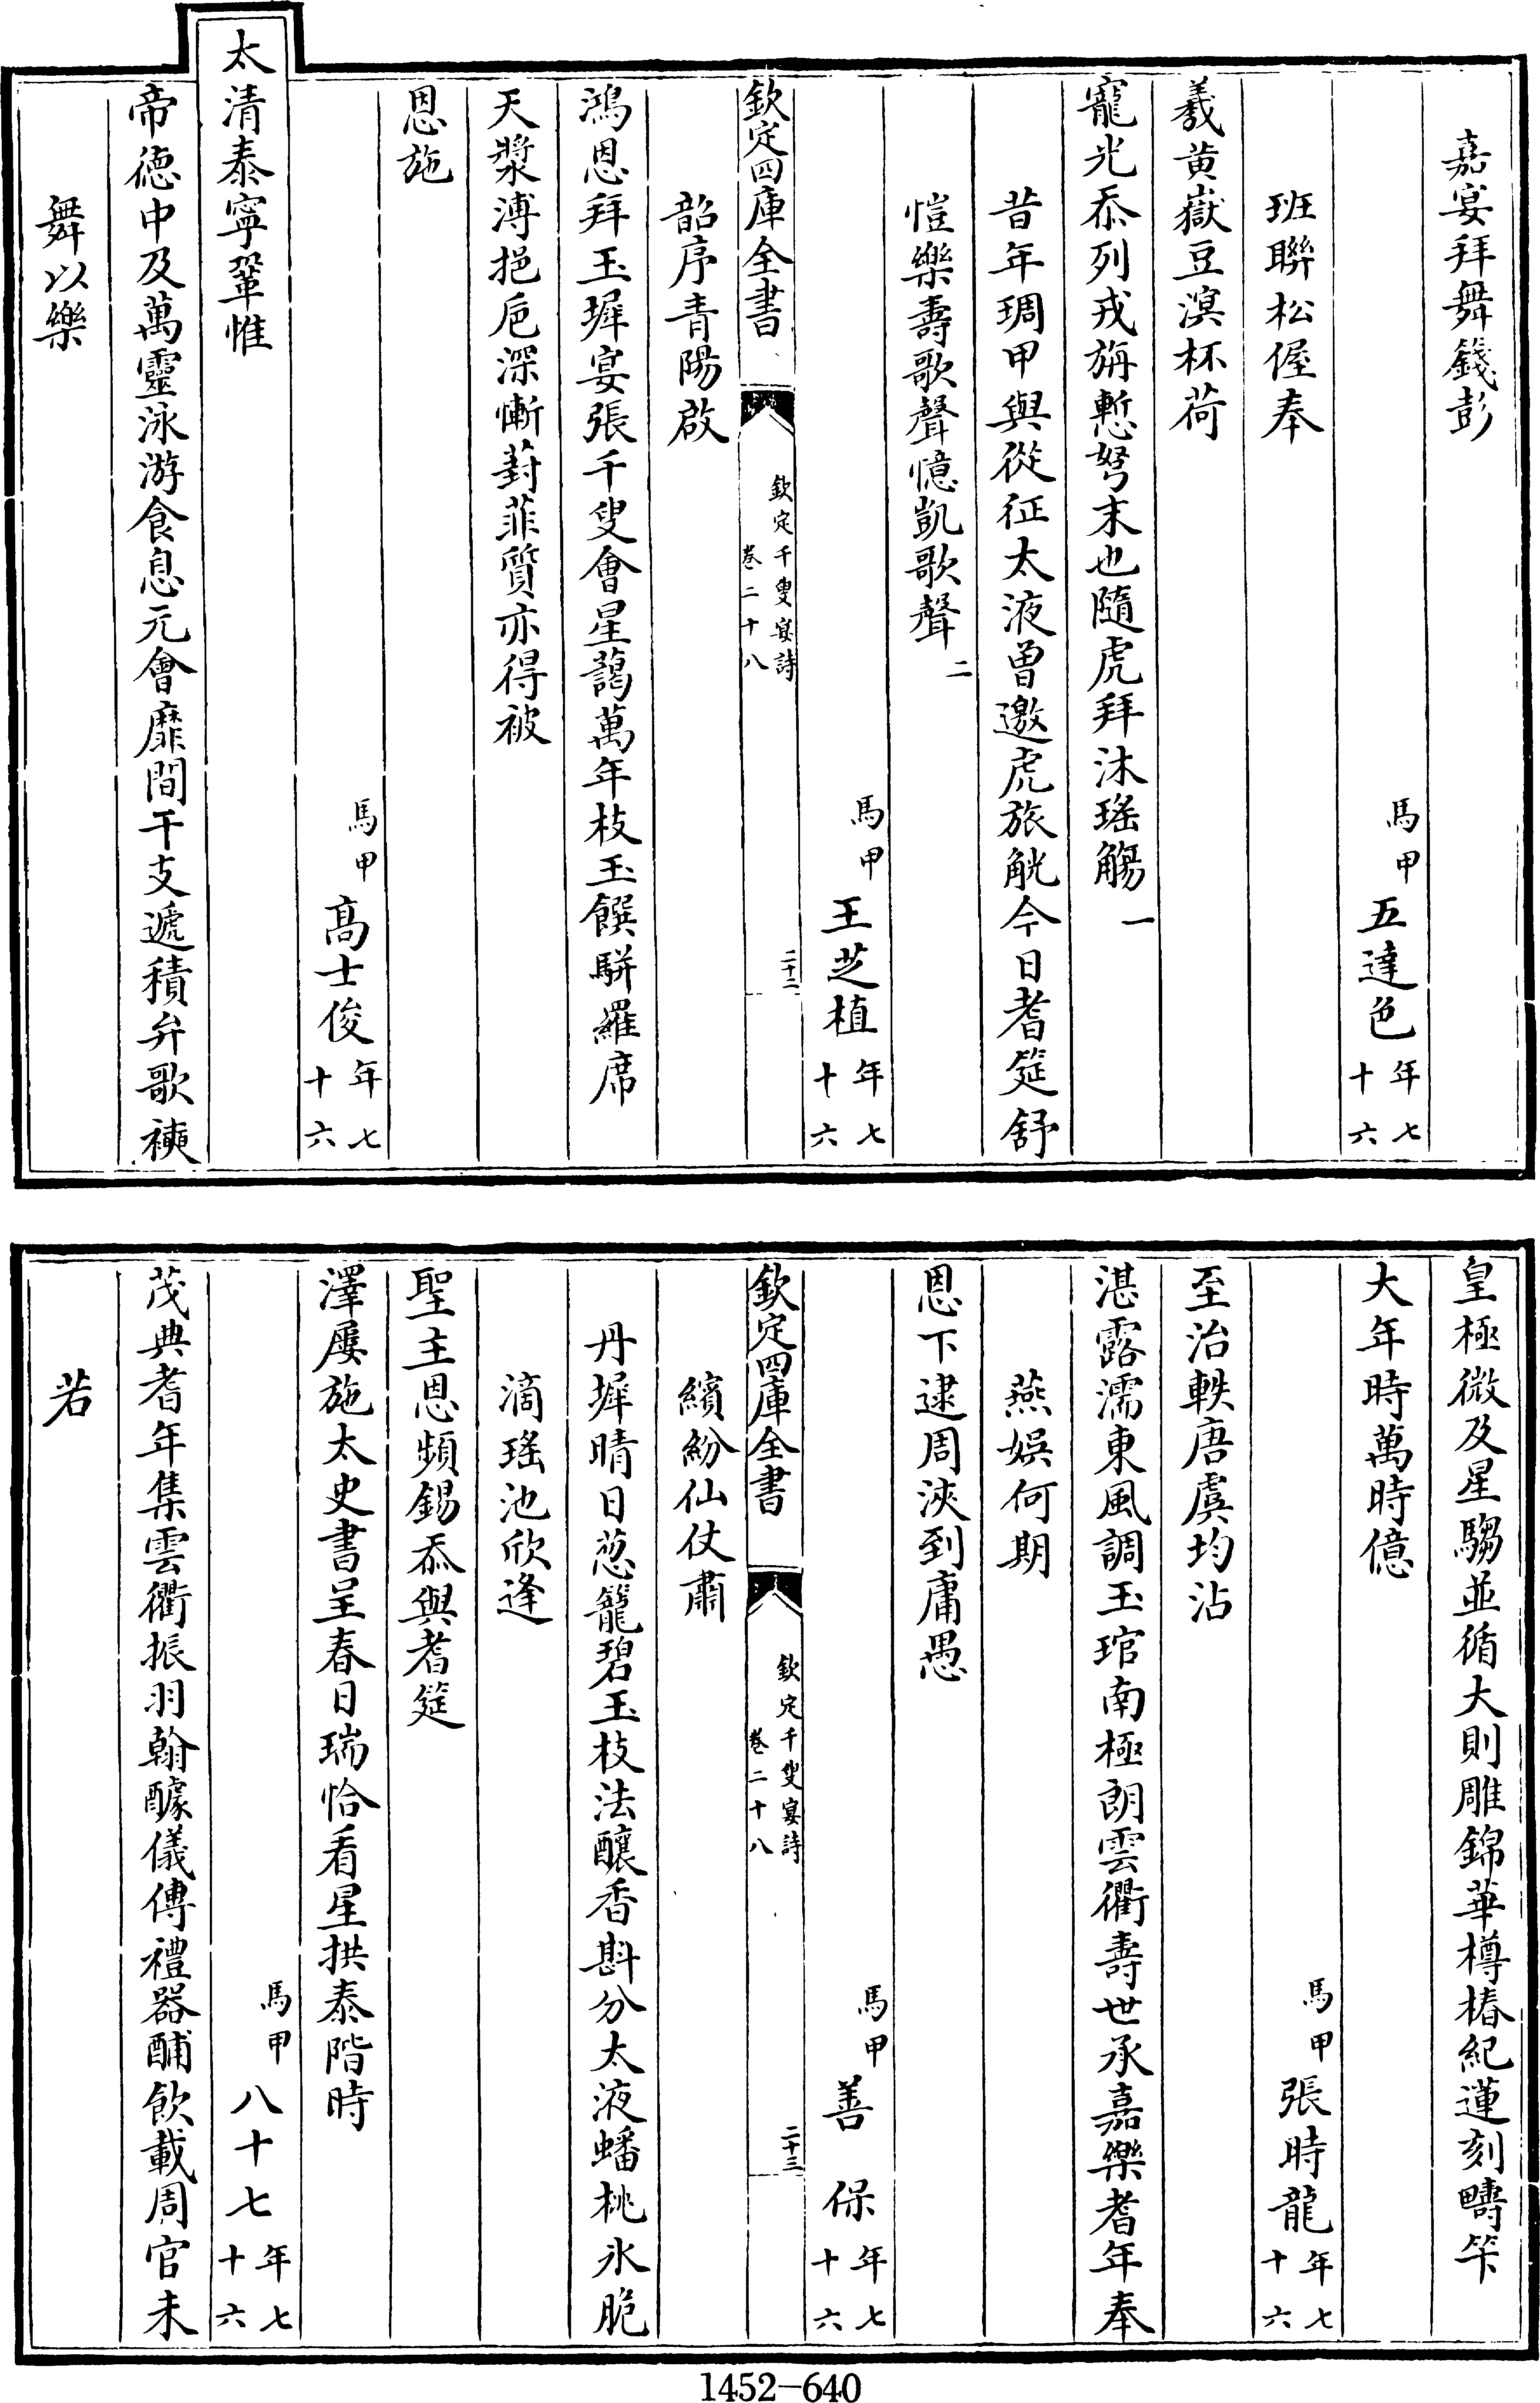 嘉宴拜舞錢彭
馬甲五達色年七十六
班聯松偓奉
羲黄嶽豆溟杯荷
寵光忝列戎旃慙弩末也隨虎拜沐瑤觴一
昔年琱甲與從征太液曽邀虎旅觥今日耆筵舒
愷樂壽歌聲憶凱歌聲二
馬甲王芝植年七十六
欽定四庫全書
欽定千叟宴詩
卷二十八
二十二
韶序青陽啟
鴻恩拜玉墀宴張千叟會星藹萬年枝玉饌駢羅席
天漿溥挹巵深慚葑菲質亦得被
恩施
馬甲高士俊年七十六
太清泰寧鞏惟
帝徳中及萬靈泳游食息元會靡間干支遞積弁歌襫
舞以樂
皇極微及星騶並循大則雕錦華樽椿紀蓮刻疇𥬇
大年時萬時億
馬甲張時龍年七十六
至治軼唐虞均沾
湛露濡東風調玉琯南極朗雲衢壽世承嘉樂耆年奉
燕娱何期
恩下逮周浹到庸愚
馬甲善保年七十六
欽定四庫全書
欽定千叟宴詩
卷二十八
二十三
繽紛仙仗肅
丹墀晴日葱籠碧玉枝法釀香斟分太液蟠桃氷脆
滴瑤池欣逢
聖主恩頻錫忝與耆筵
澤屢施太史書呈春日瑞恰看星拱泰階時
馬甲八十七年七十六
茂典耆年集雲衢振羽翰醵儀傳禮器酺飲載周官未
若
1452-640